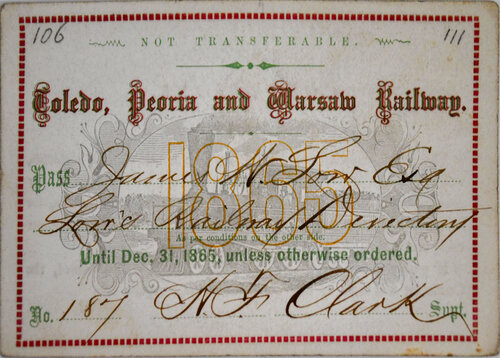 106 111
NOT TRANSFERABLE.
Toledo, Peoria and Warsaw Railway.
1865
Pass James W. Low Esq
Railway
As per conditions on the other side.
Until Dec. 31, 1865, unless otherwise ordered.
No. 187 H. F. Clark Supt.